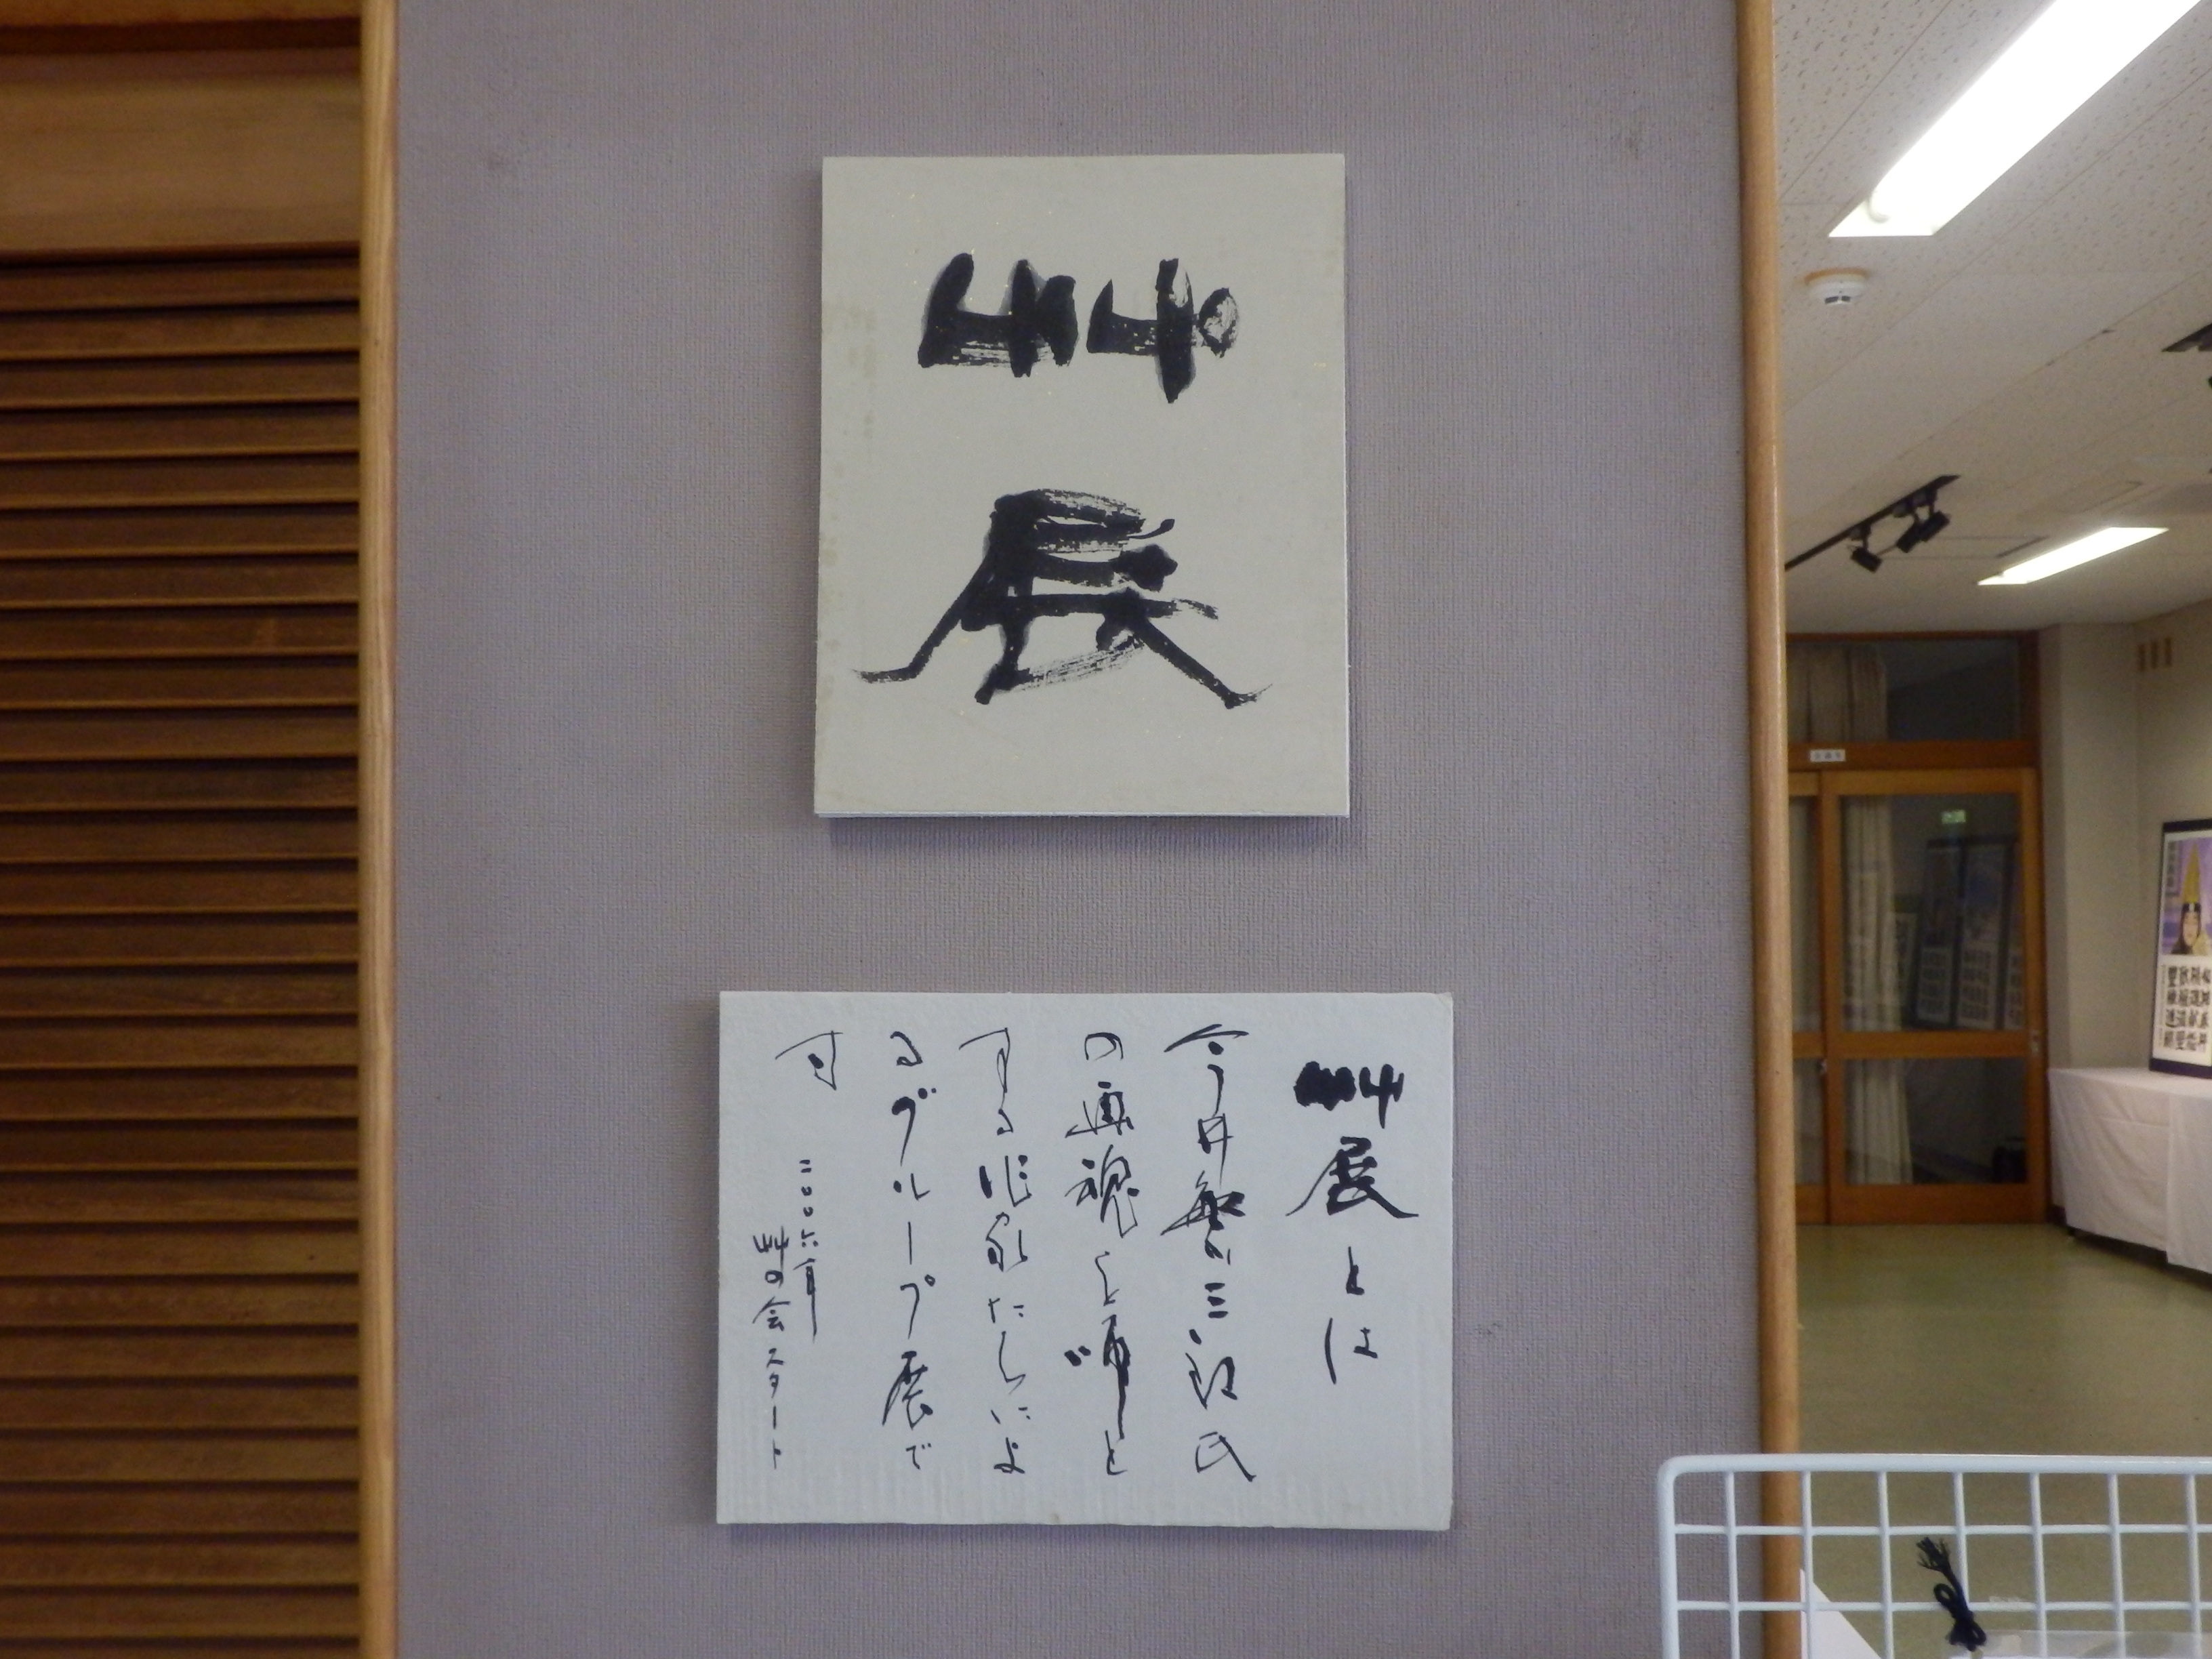 艸展
艸展とは
今井繁三郎氏
の画魂を師と
する作家たちによ
るグループ展で
す
二〇〇六年
艸の会スタート